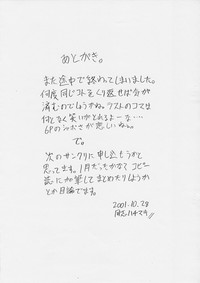 あとがき。
また途中で終わってしまいました。
何度同じコトをくり返せば気が
済むのでしょうかね。ラストのコマは
何となく笑いがとれるよーな…
6Pの が悲しいね。
で。
次のサンクリに申し込もうかと
思ってます。1月だったかな? コピー
誌に加筆してまとめたりしようか
とか目論でます。
2001.10.28